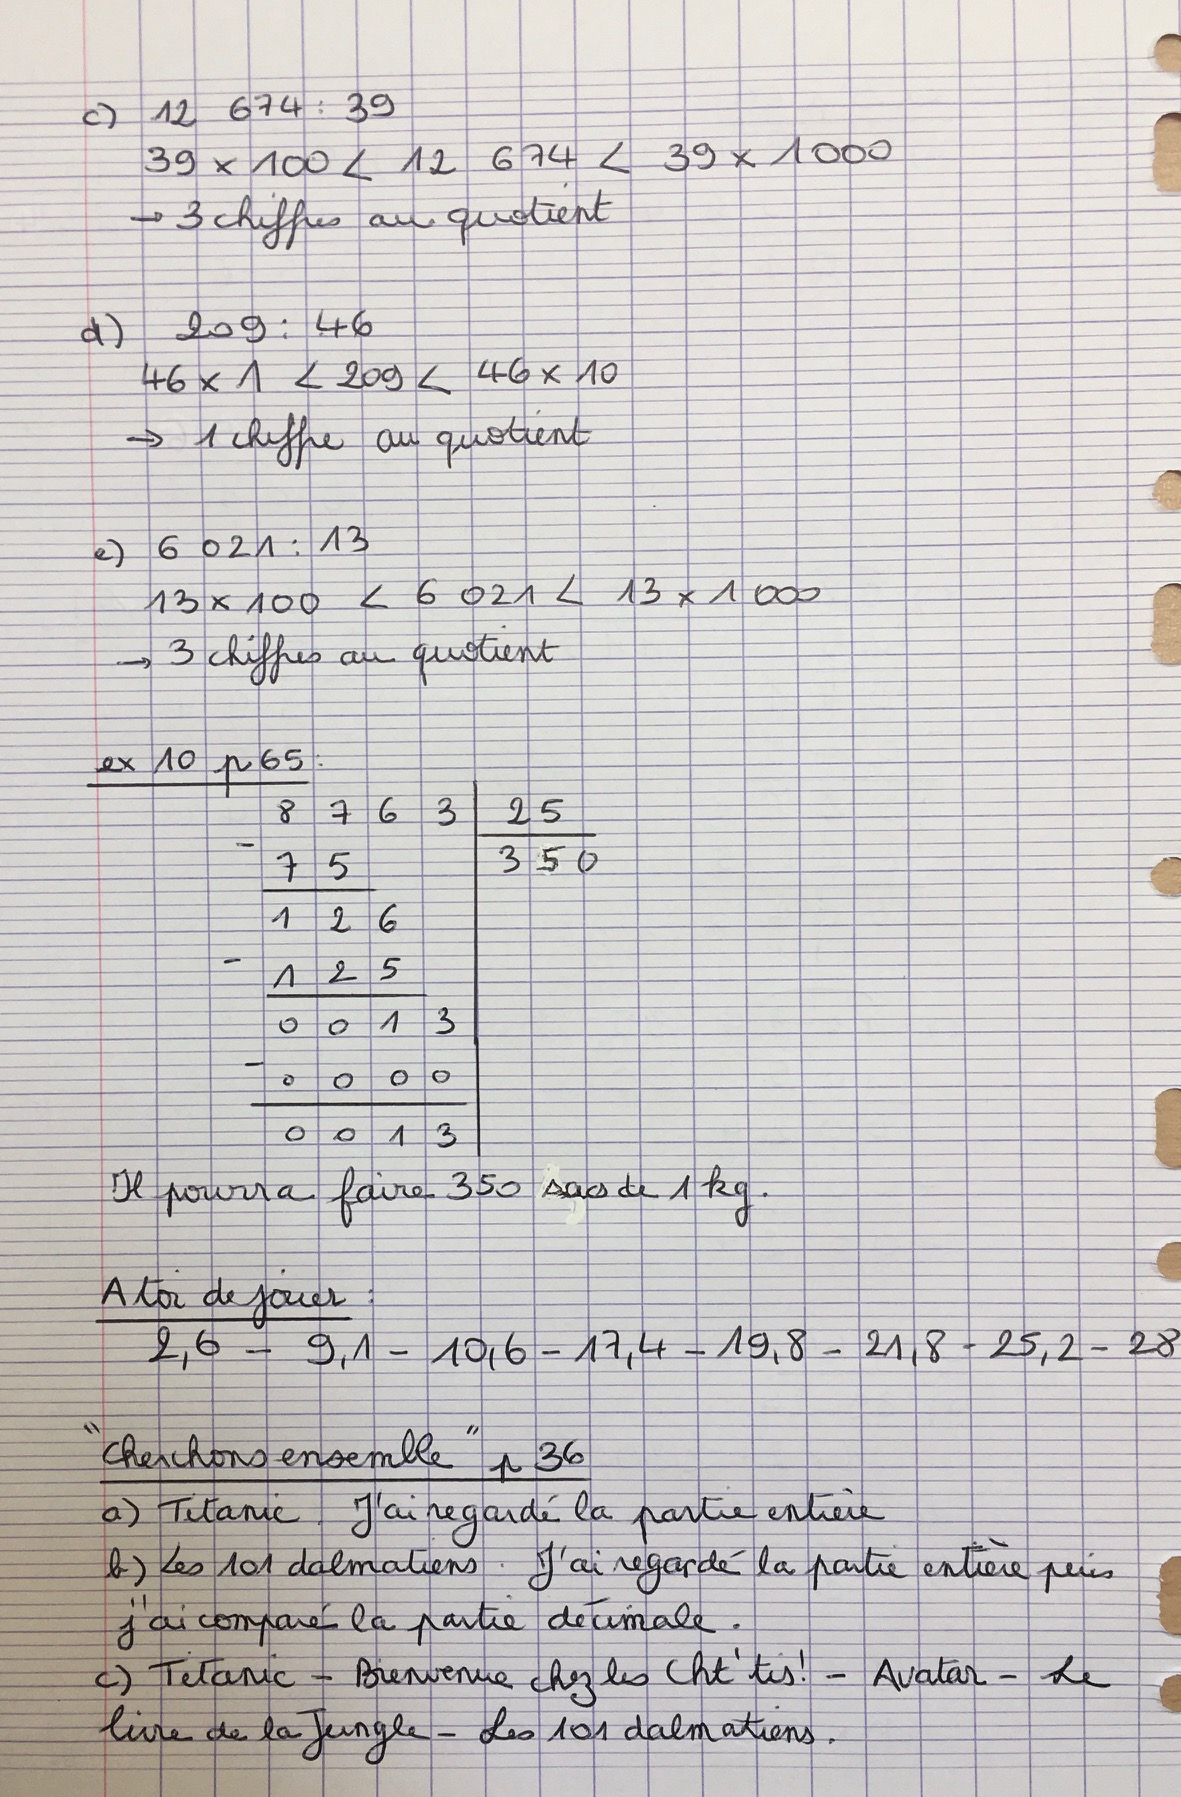 c) 12 674 : 39
39 x 100 < 12 674 < 39 x 1000
→ 3 chiffres au quotient
d) 209 : 46
46 x 1 < 209 < 46 x 10
→ 1 chiffre au quotient
e) 6 021 : 13
13 x 100 < 6 021 < 13 x 1 000
→ 3 chiffres au quotient
ex 10 p 65 :
8 7 6 3 | 25
- 7 5 350
1 2 6
- 1 2 5
0 0 1 3
- 0 0 0 0
0 0 1 3
Il pourra faire 350 sacs de 1 kg.
A toi de jouer :
2,6 - 9,1 - 10,6 - 17,4 - 19,8 - 21,8 - 25,2 - 28
"Cherchons ensemble" p 36
a) Titanic. J'ai regardé la partie entière
b) Les 101 dalmatiens. J'ai regardé la partie entière puis
j'ai comparé la partie décimale.
c) Titanic - Bienvenue chez les Cht'tis! - Avatar - Le
livre de la Jungle - Les 101 dalmatiens.